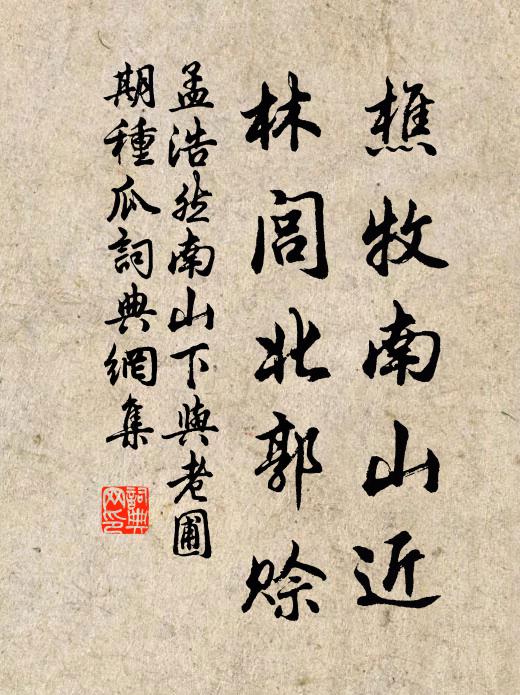 樵牧南山近
林闾北郭赊
孟浩然南山下與老圃
期種瓜詞典網集
詞典
网印